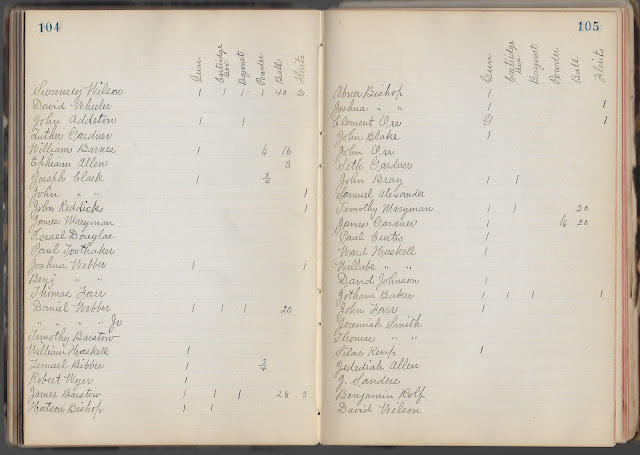 104
Gun Cartridge Box Bayonet Powder Ball Flints
Swansey Wilson 1 1 1 1 40 6
David Wheeler
John Addston 1 1
Luther Gardner
William Barnes 1 1/4 16
Ephraim Allen 8
Joseph Clark 1 3/4
John " " 1
John Reddicks 1
James Maryman
Israel Douglas
Paul Toothaker
Joshua Webber 1 1
Benj " "
Thomas Farr
Daniel Webber 1 1 1 20
" " " " Jr
Timothy Barstow
William Haskell 1
Lemuel Bibber 1
Robert Wyer 1
James Barstow 1 1 1 28 3
Watson Bishop 1 1
105
Gun Cartridge Box Bayonet Powder Ball Flints
Abner Bishop 1
Joshua " " 1 1
Clement Orr 1
John Blake 1
John Orr
Seth Gardner
John Bray 1 1
Samuel Alexander
Timothy Maryman 1 1 20
James Gardner 1 1/6 20
Paul Curtis 1
Ward Haskell 1
Willabe " "
David Johnson 1
Jotham Baker 1 1 1 1
John Farr 1
Jeremiah Smith
Thomas " "
Silas Kemp 1
Jedediah Allen
J. Sanders
Benjamin Rolf
David Wilson